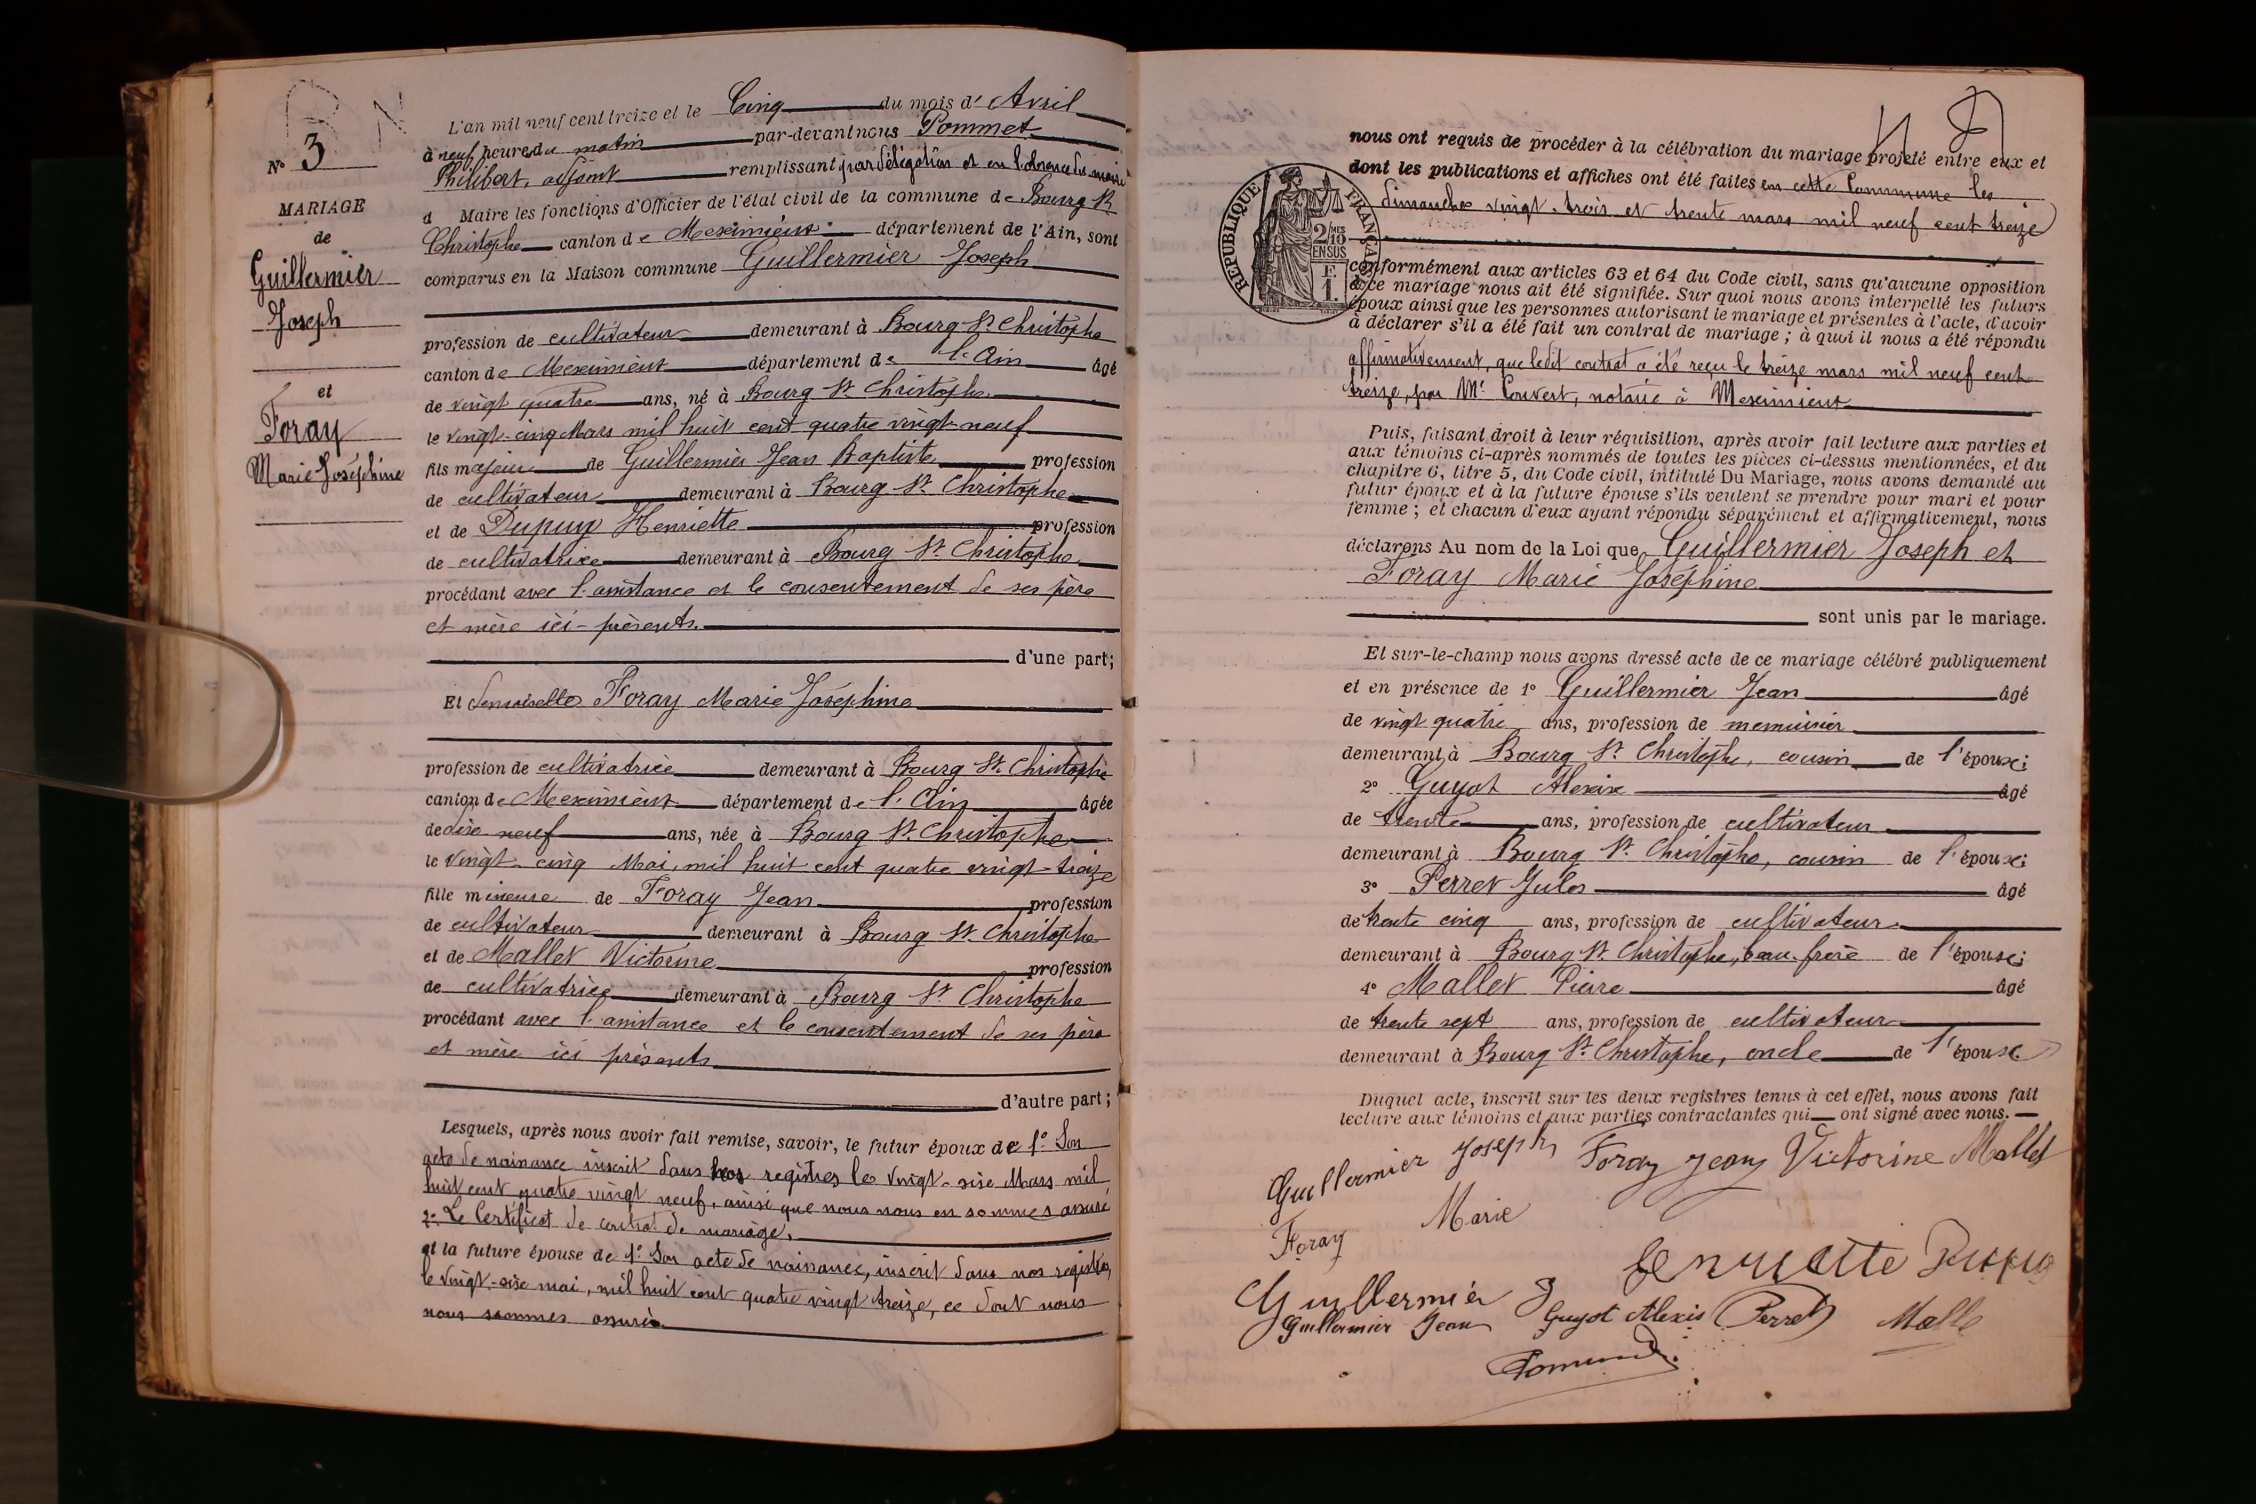 B N
N° 3
MARIAGE
de
Guillermier
Joseph
et
Foray
Marie Joséphine
L'an mil neuf cent treize et le Cinq du mois d' Avril
à neuf heures du matin par-devant nous Pommet
Philibert, adjoint remplissant par délégation et en l'absence du maire
d Maire les fonctions d'Officier de l'état civil de la commune de Bourg St
Christophe canton de Meximieux département de l'Ain, sont
comparus en la Maison commune Guillermier Joseph
profession de cultivateur demeurant à Bourg St Christophe
canton de Meximieux département de l'Ain âgé
de vingt quatre ans, né à Bourg St Christophe
le vingt-cinq Mars mil huit cent quatre vingt-neuf
fils majeur de Guillermier Jean Baptiste profession
de cultivateur demeurant à Bourg St Christophe
et de Dupuy Henriette profession
de cultivatrice demeurant à Bourg St Christophe
procédant avec l'assistance et le consentement de ses père
et mère ici-présents.
d'une part;
Et demoiselle Foray Marie Joséphine
profession de cultivatrice demeurant à Bourg St Christophe
canton de Meximieux département de l'Ain âgée
de dix neuf ans, née à Bourg St Christophe
le vingt-cinq Mai, mil huit cent quatre vingt-treize
fille mineure de Foray Jean profession
de cultivateur demeurant à Bourg St Christophe
et de Mallet Victorine profession
de cultivatrice demeurant à Bourg St Christophe
procédant avec l'assistance et le consentement de ses père
et mère ici présents
d'autre part;
Lesquels, après nous avoir fait remise, savoir, le futur époux de 1° Son
acte de naissance inscrit dans nos registres le vingt-six Mars mil
huit cent quatre vingt neuf, ainsi que nous nous en sommes assuré
2° Le Certificat de contrat de mariage.
et la future épouse de 1° Son acte de naissance, inscrit dans nos registres
le vingt-six mai, mil huit cent quatre vingt treize, ce dont nous
nous sommes assuré.
nous ont requis de procéder à la célébration du mariage projeté entre eux et
dont les publications et affiches ont été faites en cette Commune les
dimanches vingt-trois et trente mars mil neuf cent treize
RÉPUBLIQUE FRANÇAISE
2/10 MES
EN SUS
F.
1.
conformément aux articles 63 et 64 du Code civil, sans qu'aucune opposition
à ce mariage nous ait été signifiée. Sur quoi nous avons interpellé les futurs
époux ainsi que les personnes autorisant le mariage et présentes à l'acte, d'avoir
à déclarer s'il a été fait un contrat de mariage; à quoi il nous a été répondu
affirmativement, que ledit contrat a été reçu le treize mars mil neuf cent
treize, par Me Couvert, notaire à Meximieux
Puis, faisant droit à leur réquisition, après avoir fait lecture aux parties et
aux témoins ci-après nommés de toutes les pièces ci-dessus mentionnées, et du
chapitre 6, titre 5, du Code civil, intitulé Du Mariage, nous avons demandé au
futur époux et à la future épouse s'ils veulent se prendre pour mari et pour
femme; et chacun d'eux ayant répondu séparément et affirmativement, nous
déclarons Au nom de la Loi que Guillermier Joseph et
Foray Marie Joséphine
sont unis par le mariage.
Et sur-le-champ nous avons dressé acte de ce mariage célébré publiquement
et en présence de 1° Guillermier Jean âgé
de vingt quatre ans, profession de menuisier
demeurant à Bourg St Christophe, cousin de l'épouse;
2° Guyot Alexix âgé
de trente ans, profession de cultivateur
demeurant à Bourg St Christophe, cousin de l'épouse;
3° Perret Jules âgé
de trente cinq ans, profession de cultivateur
demeurant à Bourg St Christophe, beau-frère de l'épouse;
4° Mallet Pierre âgé
de trente sept ans, profession de cultivateur
demeurant à Bourg St Christophe, oncle de l'épouse
Duquel acte, inscrit sur les deux registres tenus à cet effet, nous avons fait
lecture aux témoins et aux parties contractantes qui ont signé avec nous.
Guillermier Joseph Foray Jean Victorine Mallet
Foray Marie
Henriette Dupuy
Guillermier J
Guillermier Jean Guyot Alexis Perret Malle
Pommet